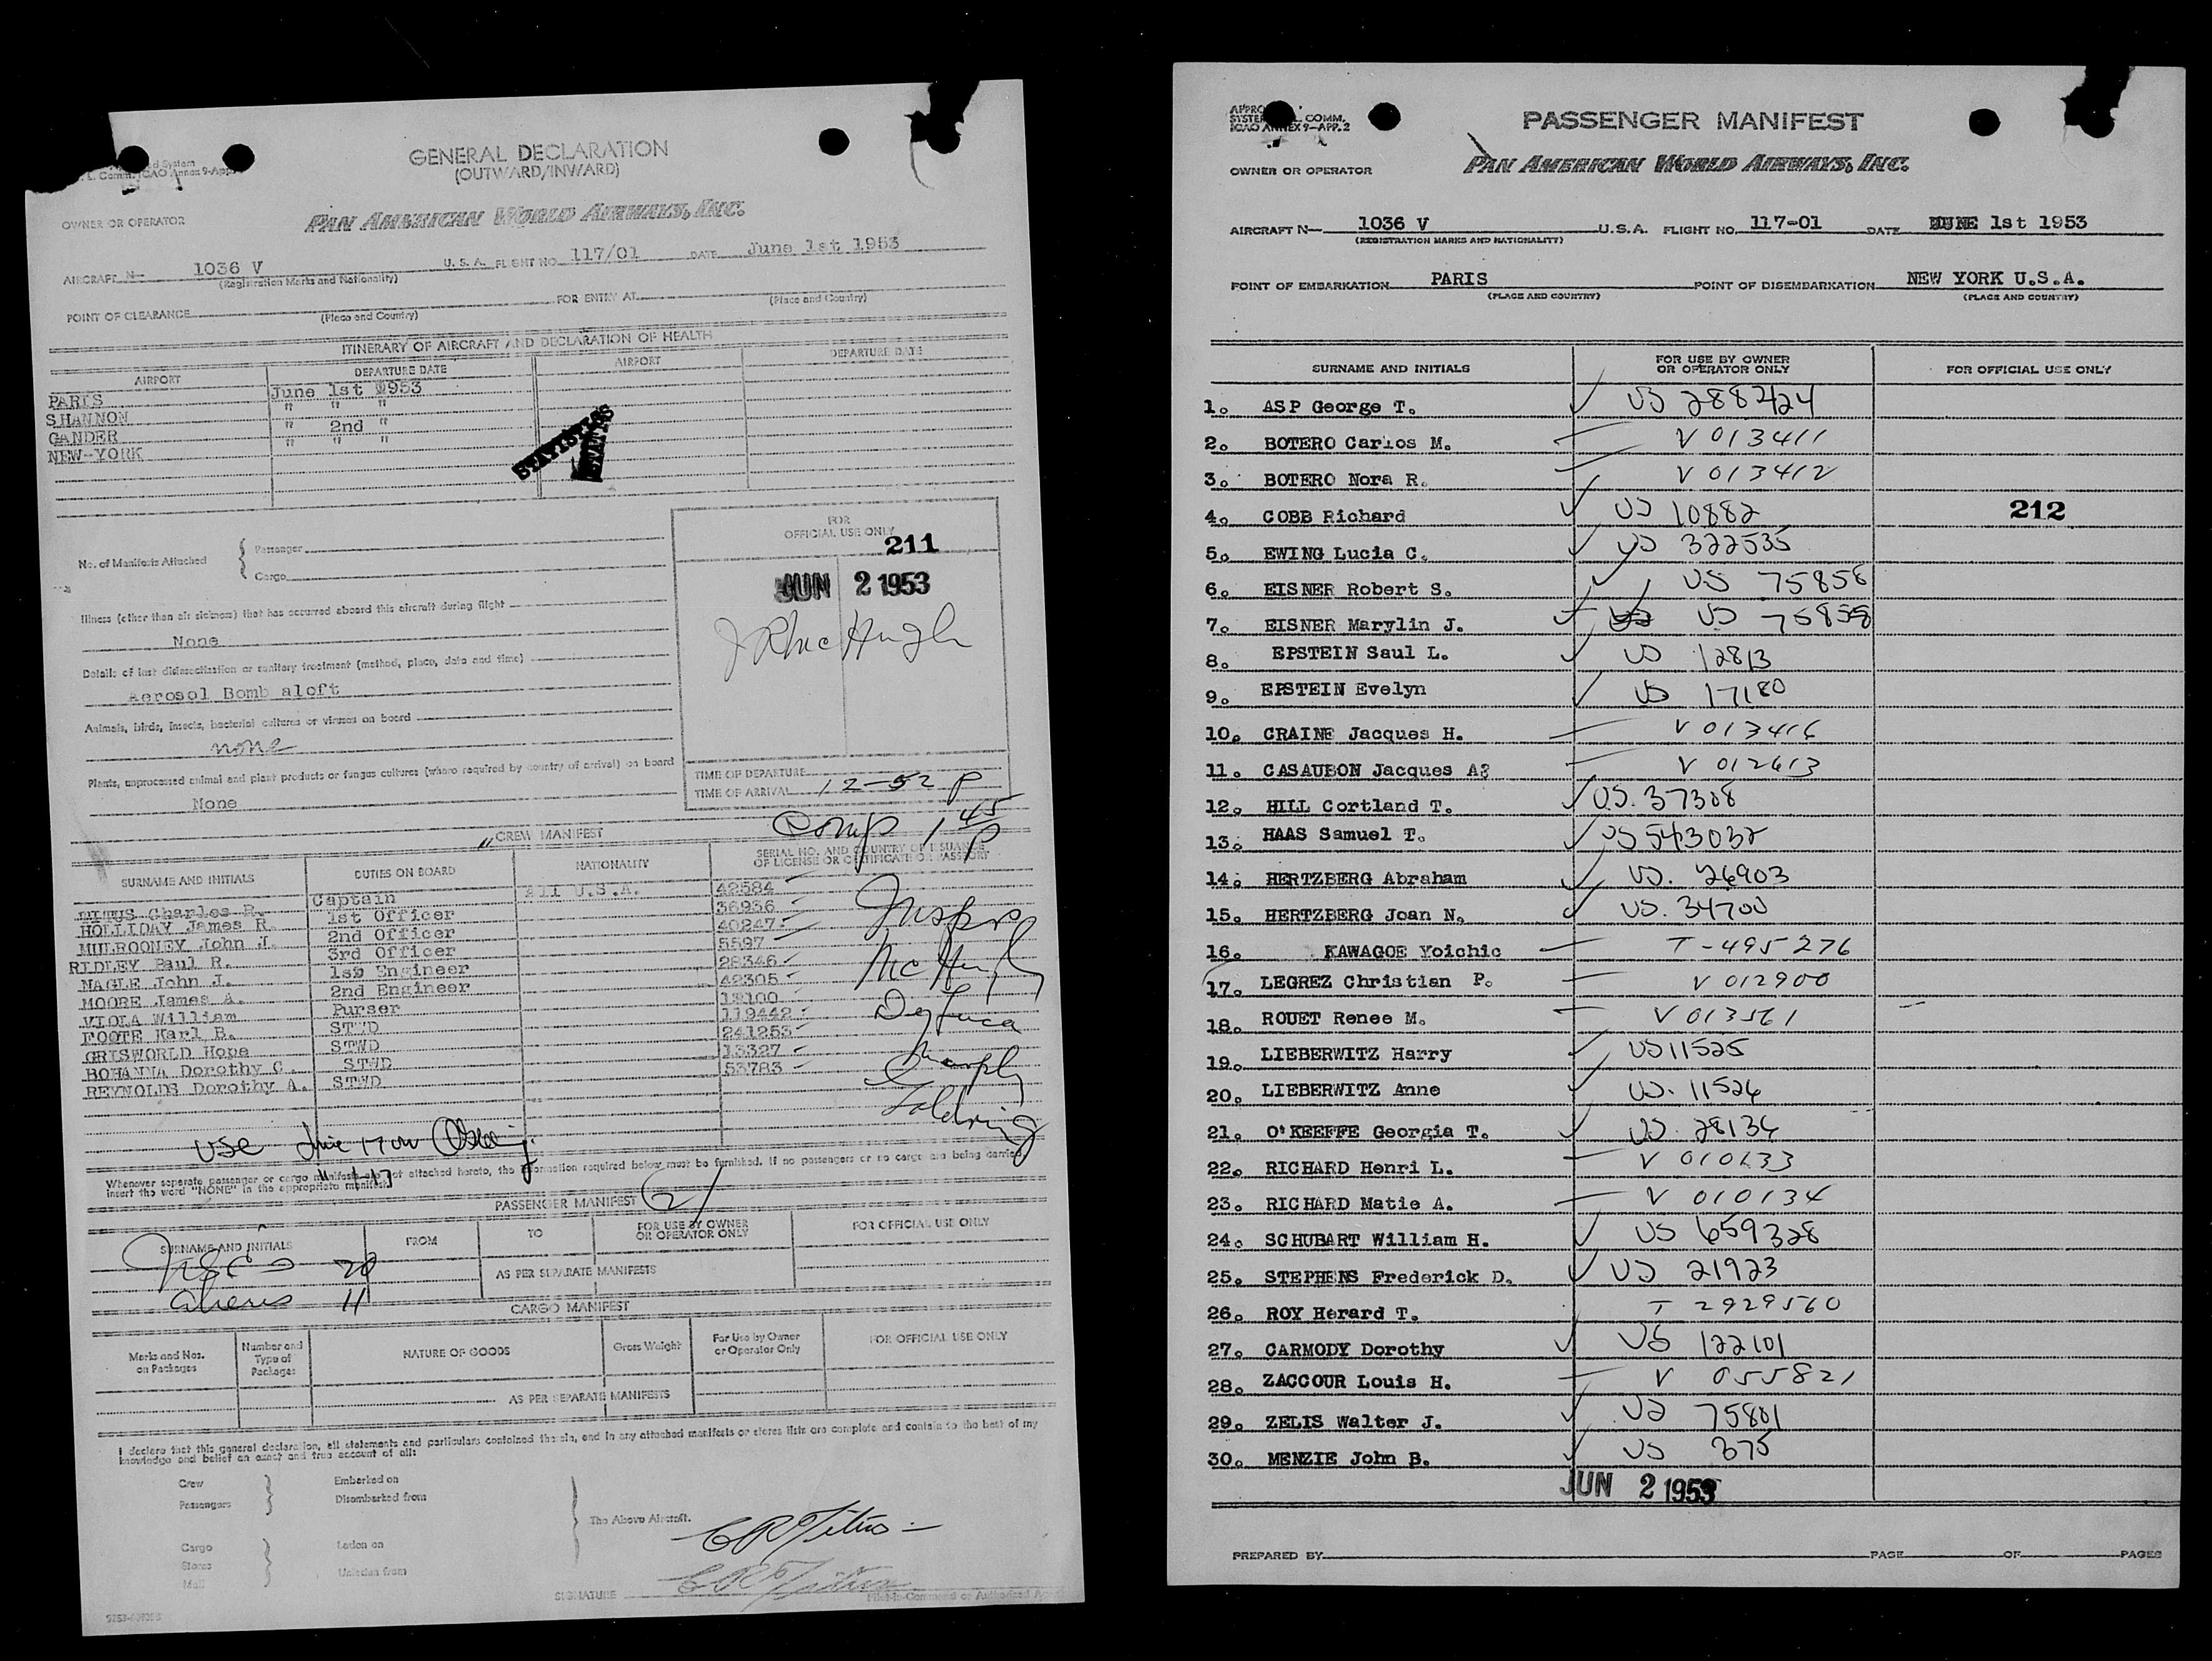 d System
L. Comm. ICAO Annex 9-App.
GENERAL DECLARATION
(OUTWARD/INWARD)
OWNER OR OPERATOR
PAN AMERICAN WORLD AIRWAYS, INC.
AIRCRAFT N- 1036 V U. S. A. FLIGHT NO. 117/01 DATE June 1st 1953
(Registration Marks and Nationality)
POINT OF CLEARANCE FOR ENTRY AT
(Place and Country) (Place and Country)
ITINERARY OF AIRCRAFT AND DECLARATION OF HEALTH
AIRPORT DEPARTURE DATE AIRPORT DEPARTURE DATE
PARIS June 1st 1953
SHANNON " " "
GANDER " 2nd "
NEW-YORK " " "
STATISTICS
STATISTICS
No. of Manifests Attached { Passenger
Cargo
FOR
OFFICIAL USE ONLY
211
JUN 2 1953
J R McHugh
Illness (other than air sickness) that has occurred aboard this aircraft during flight
None
Details of last disinsectisation or sanitary treatment (method, place, date and time)
Aerosol Bomb aloft
Animals, birds, insects, bacterial cultures or viruses on board
none
Plants, unprocessed animal and plant products or fungus cultures (where required by country of arrival) on board
None
TIME OF DEPARTURE
TIME OF ARRIVAL 12-52 P
Comp 1 45 P
CREW MANIFEST
SURNAME AND INITIALS DUTIES ON BOARD NATIONALITY SERIAL NO. AND COUNTRY OF ISSUANCE OF LICENSE OR CERTIFICATE OR PASSPORT
TITUS Charles R. Captain All U.S.A. 42584
HOLLIDAY James R. 1st Officer 36936
MULROONEY John J. 2nd Officer 40247
RIDLEY Paul R. 3rd Officer 5597
NAGLE John J. 1st Engineer 28346
MOORE James A. 2nd Engineer 42305
VIOLA William Purser 18100
FOOTE Karl B. STWD 119442
GRISWORLD Hope STWD 241253
BOHANNA Dorothy C. STWD 13327
REYNOLDS Dorothy A. STWD 53783
Insprs
McHugh
DeLuca
Murphy
Goldring
use
Whenever separate passenger or cargo manifests are not attached hereto, the information required below must be furnished. If no passengers or no cargo are being carried,
insert the word "NONE" in the appropriate manifest.
PASSENGER MANIFEST
SURNAME AND INITIALS FROM TO FOR USE BY OWNER OR OPERATOR ONLY FOR OFFICIAL USE ONLY
USCs 20
Aliens 11
AS PER SEPARATE MANIFESTS
CARGO MANIFEST
Marks and Nos. on Packages Number and Type of Packages NATURE OF GOODS Gross Weight For Use by Owner or Operator Only FOR OFFICIAL USE ONLY
AS PER SEPARATE MANIFESTS
I declare that this general declaration, all statements and particulars contained therein, and in any attached manifests or stores lists are complete and contain to the best of my
knowledge and belief an exact and true account of all:
Crew Embarked on
Passengers Disembarked from
The Above Aircraft.
Cargo Laden on
Stores
Mail Unladen from
C R Titus
SIGNATURE C R Titus
Pilot-in-Command or Authorized
APPRO
SYSTE L. COMM.
ICAO ANNEX 9-APP. 2
PASSENGER MANIFEST
OWNER OR OPERATOR PAN AMERICAN WORLD AIRWAYS, INC.
AIRCRAFT N- 1036 V U.S.A. FLIGHT NO. 117-01 DATE JUNE 1st 1953
(REGISTRATION MARKS AND NATIONALITY)
POINT OF EMBARKATION PARIS POINT OF DISEMBARKATION NEW YORK U.S.A.
(PLACE AND COUNTRY) (PLACE AND COUNTRY)
SURNAME AND INITIALS FOR USE BY OWNER OR OPERATOR ONLY FOR OFFICIAL USE ONLY
1. ASP George T. US 288424
2. BOTERO Carlos M. V 013411
3. BOTERO Nora R. V 013412
4. COBB Richard US 10882 212
5. EWING Lucia C. US 322535
6. EISNER Robert S. US 75858
7. EISNER Marylin J. US 75858
8. EPSTEIN Saul L. US 12813
9. EPSTEIN Evelyn US 17180
10. CRAINE Jacques H. V 013416
11. CASAUBON Jacques A. V 012613
12. HILL Cortland T. US. 37308
13. HAAS Samuel T. US 543032
14. HERTZBERG Abraham US. 26903
15. HERTZBERG Joan N. US. 34700
16. KAWAGOE Yoichic T-495276
17. LEGREZ Christian P. V 012900
18. ROUET Renee M. V 013561
19. LIEBERWITZ Harry US 11525
20. LIEBERWITZ Anne US. 11526
21. O'KEEFFE Georgia T. US. 28136
22. RICHARD Henri L. V 010133
23. RICHARD Matie A. V 010134
24. SCHUBART William H. US 659328
25. STEPHENS Frederick D. US 21923
26. ROY Herard T. T 2929560
27. CARMODY Dorothy US 122101
28. ZACCOUR Louis H. V 055821
29. ZELIS Walter J. US 75801
30. MENZIE John B. US 375
JUN 2 1953
PREPARED BY PAGE OF PAGES